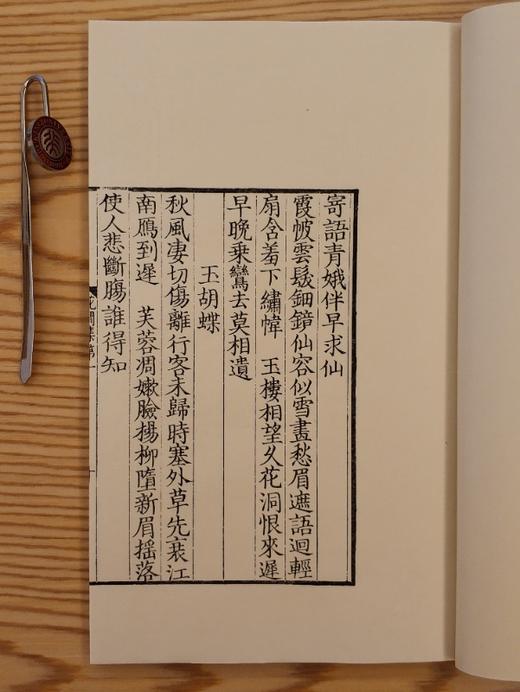 寄語青娥伴早求仙
霞帔雲髮鈿鏡仙容似雪畫愁眉遮語迴輕
扇含羞下繡幃　玉樓相望久花洞恨來遲
早晚乘鸞去莫相遺
玉胡蝶
秋風凄切傷離行客未歸時塞外草先衰江
南鴈到遲　芙蓉凋嫩臉楊柳墮新眉揺落
使人悲斷膓誰得知
花間集第一